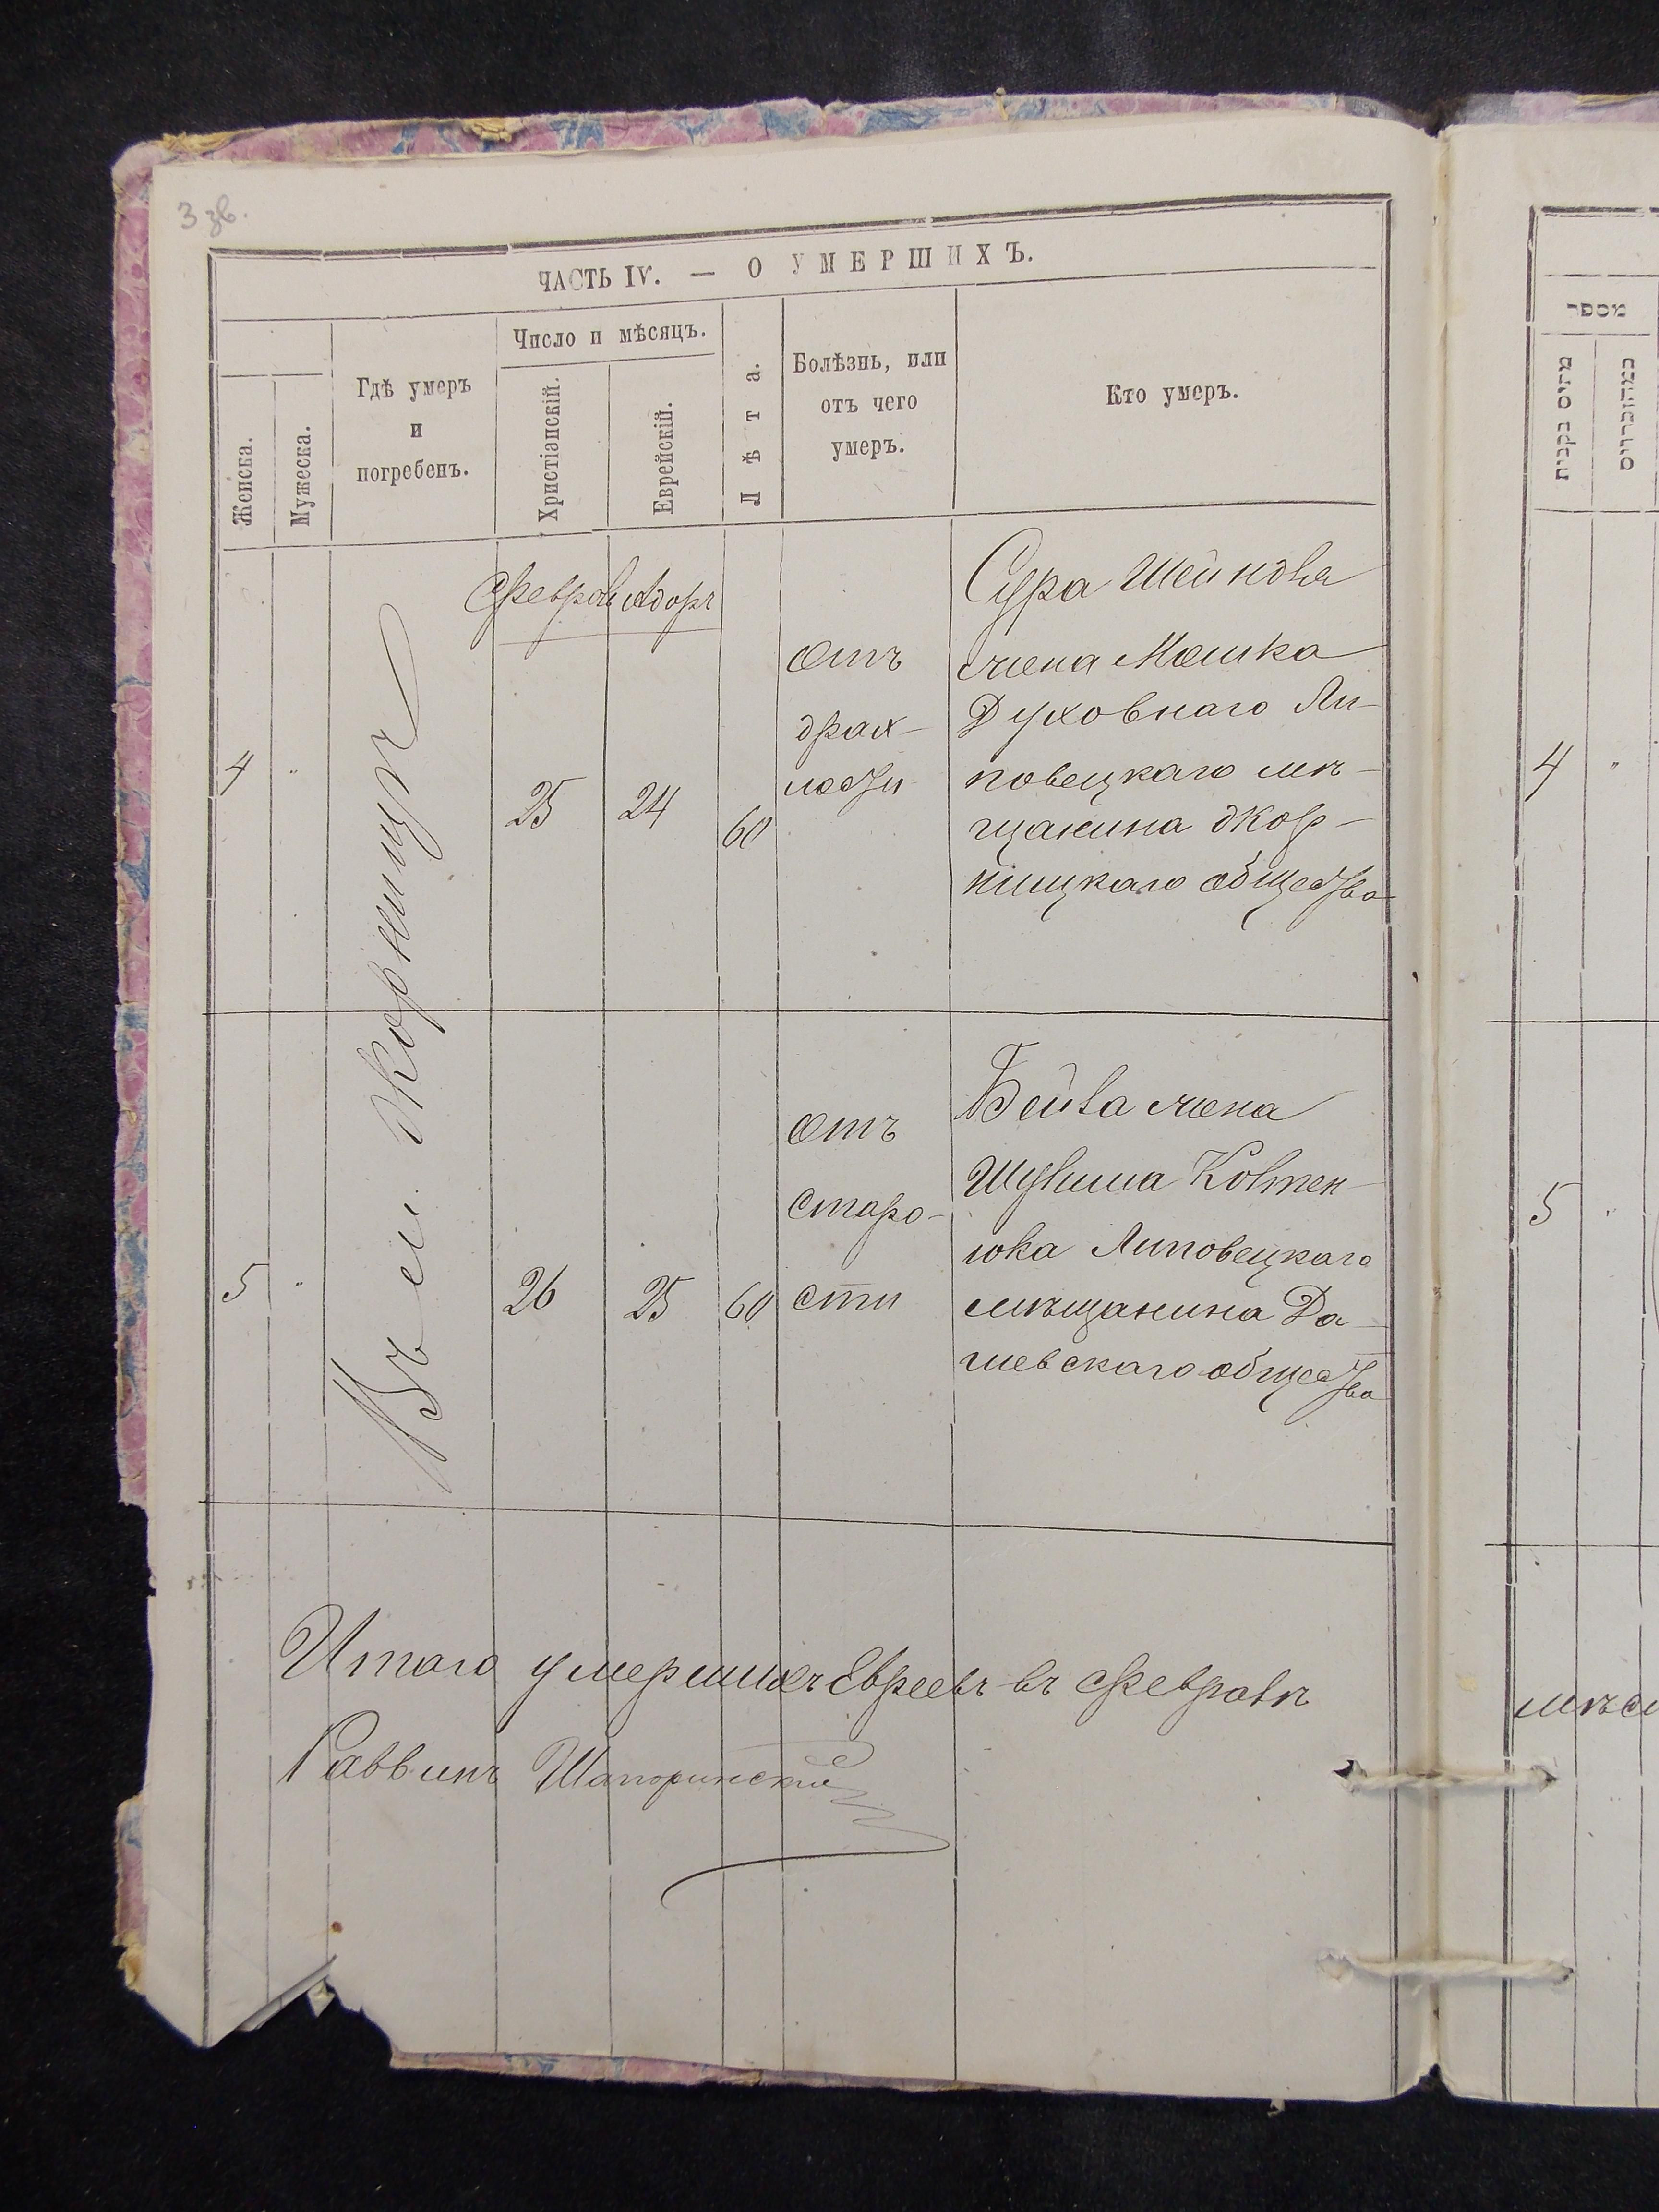 3 зв.
ЧАСТЬ IV. — О УМЕРШИХЪ.
Женска.
Мужеска.
Гдѣ умеръ
и
погребенъ.
Число и мѣсяцъ.
Христіанскій.
Еврейскій.
Лѣта.
Болѣзнь, или
отъ чего
умеръ.
Кто умеръ.
Въ м. Жорнищѣ
Февраль Адаръ
4 " 25 24 60
отъ
драх-
лости
Сура Шейндля
жена Мошка
Духовнаго Ли-
повецкаго мѣ-
щанина Жор-
нищкаго общества
5 " 26 25 60
отъ
старо-
сти
Бейла жена
Шулима Колтен-
юка Липовецкаго
мѣщанина Да-
шевскаго общества
Итого умершихъ Евреевъ въ Февралѣ
Раввинъ Шапоринскій
מספר
4 "
5 "